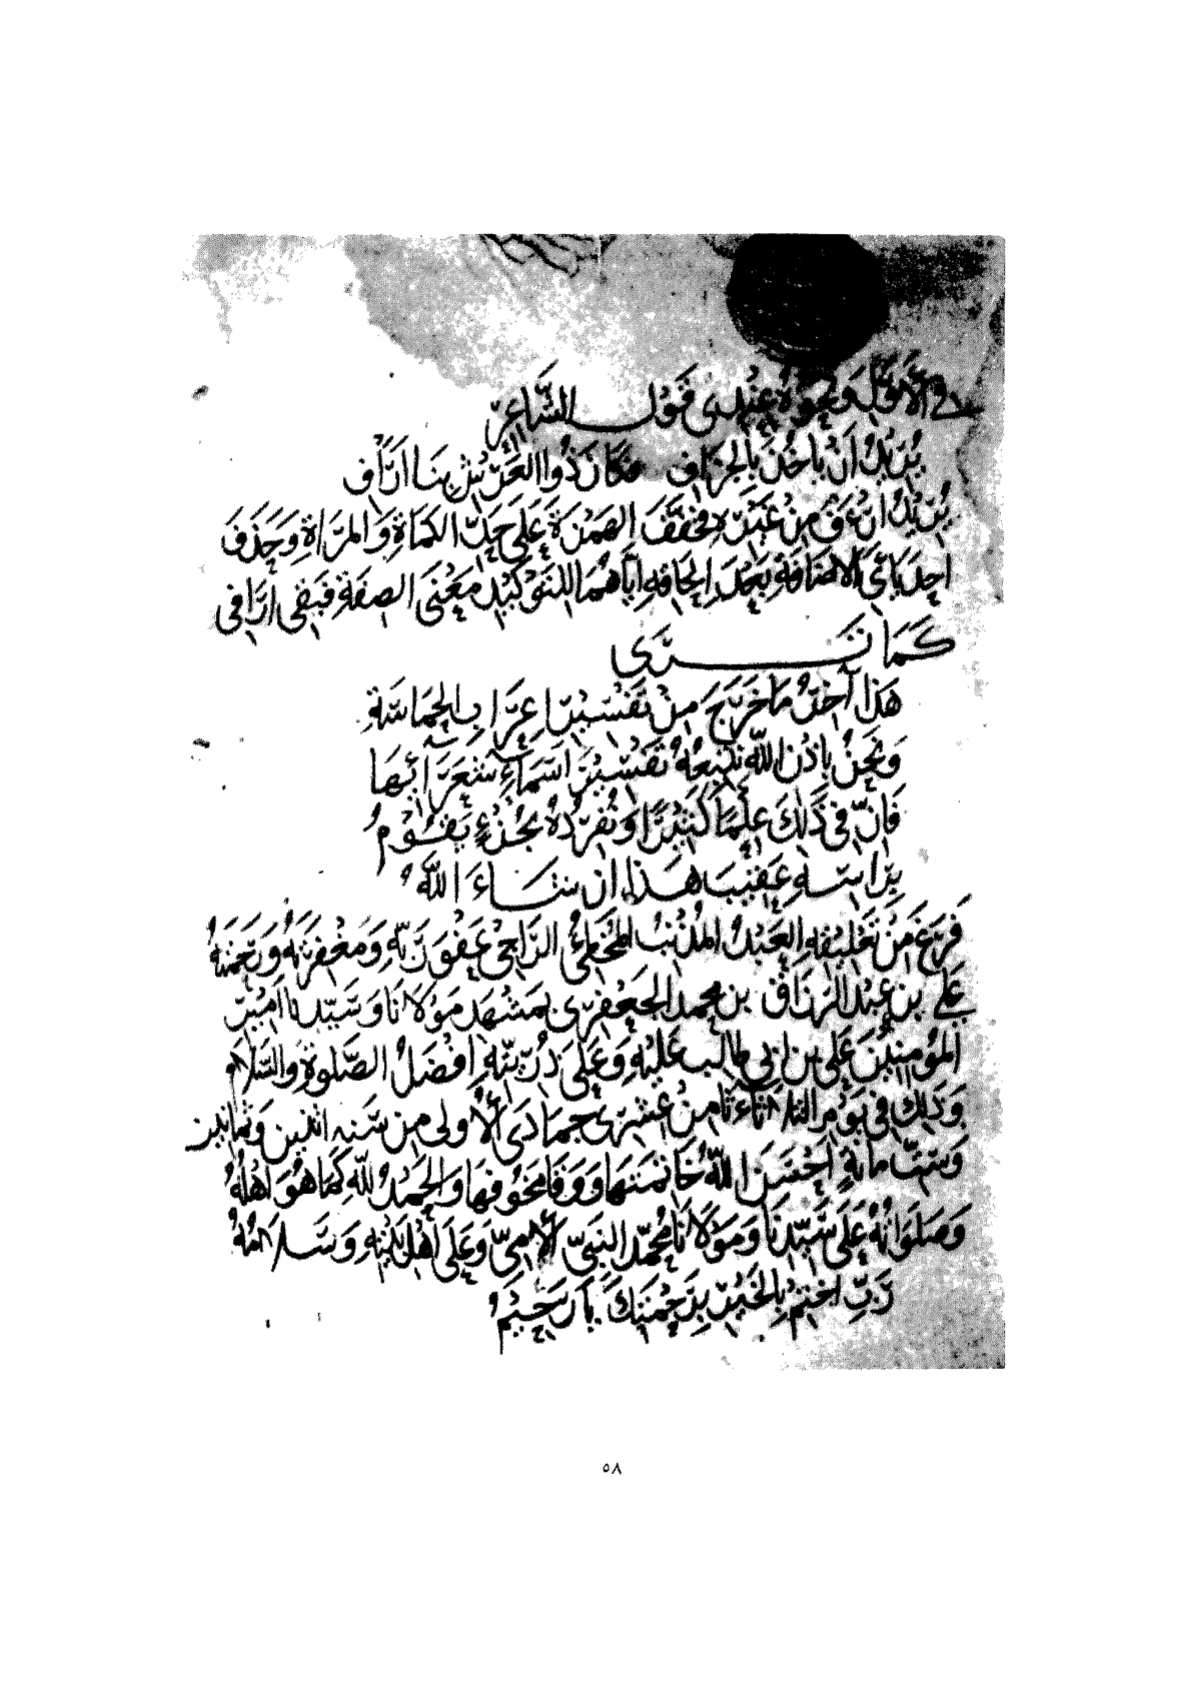 في الأوّلة ونحوه عندى قول الشاعر
يريد أن ياخذ بالجزاف فكان ذوا العرش بنا اراف
يريد أن من غير فخفف الهمزة على حد الكماة والمراة وحذف
احد يائي الاضافة بعد الحاقه اياهما للتوكيد معنى الصفة فبقى ارافى
كما ترى
هذا آخر ما خرج من تفسير اعراب الحماسة
ونحن باذن الله نتبعه تفسير اسماء شعرائها
فان في ذلك علما كثيرا ونفرده بجزء يقوم
براسه عقيب هذا ان شاء الله
فرغ من تعليقه العبد المذنب المخطئ الراجى عفو ربه ومغفرته ورحمته
على بن عبد الرزاق بن محمد الجعفرى بمشهد مولانا وسيدنا امير
المومنين على بن ابي طالب عليه وعلى ذريته افضل الصلوة والسلام
وذلك في يوم الثلاثاء ثامن عشرى جمادى الأولى من سنه اثنين وثمانين
وستمائة احسن الله خاتمتها ووقا مخوفها والحمد لله كما هو اهله
وصلواته على سيدنا ومولانا محمد النبي الأمى وعلى اهل بيته وسلامه
رب اختم بالخير برحمتك يا رحيم
٥٨